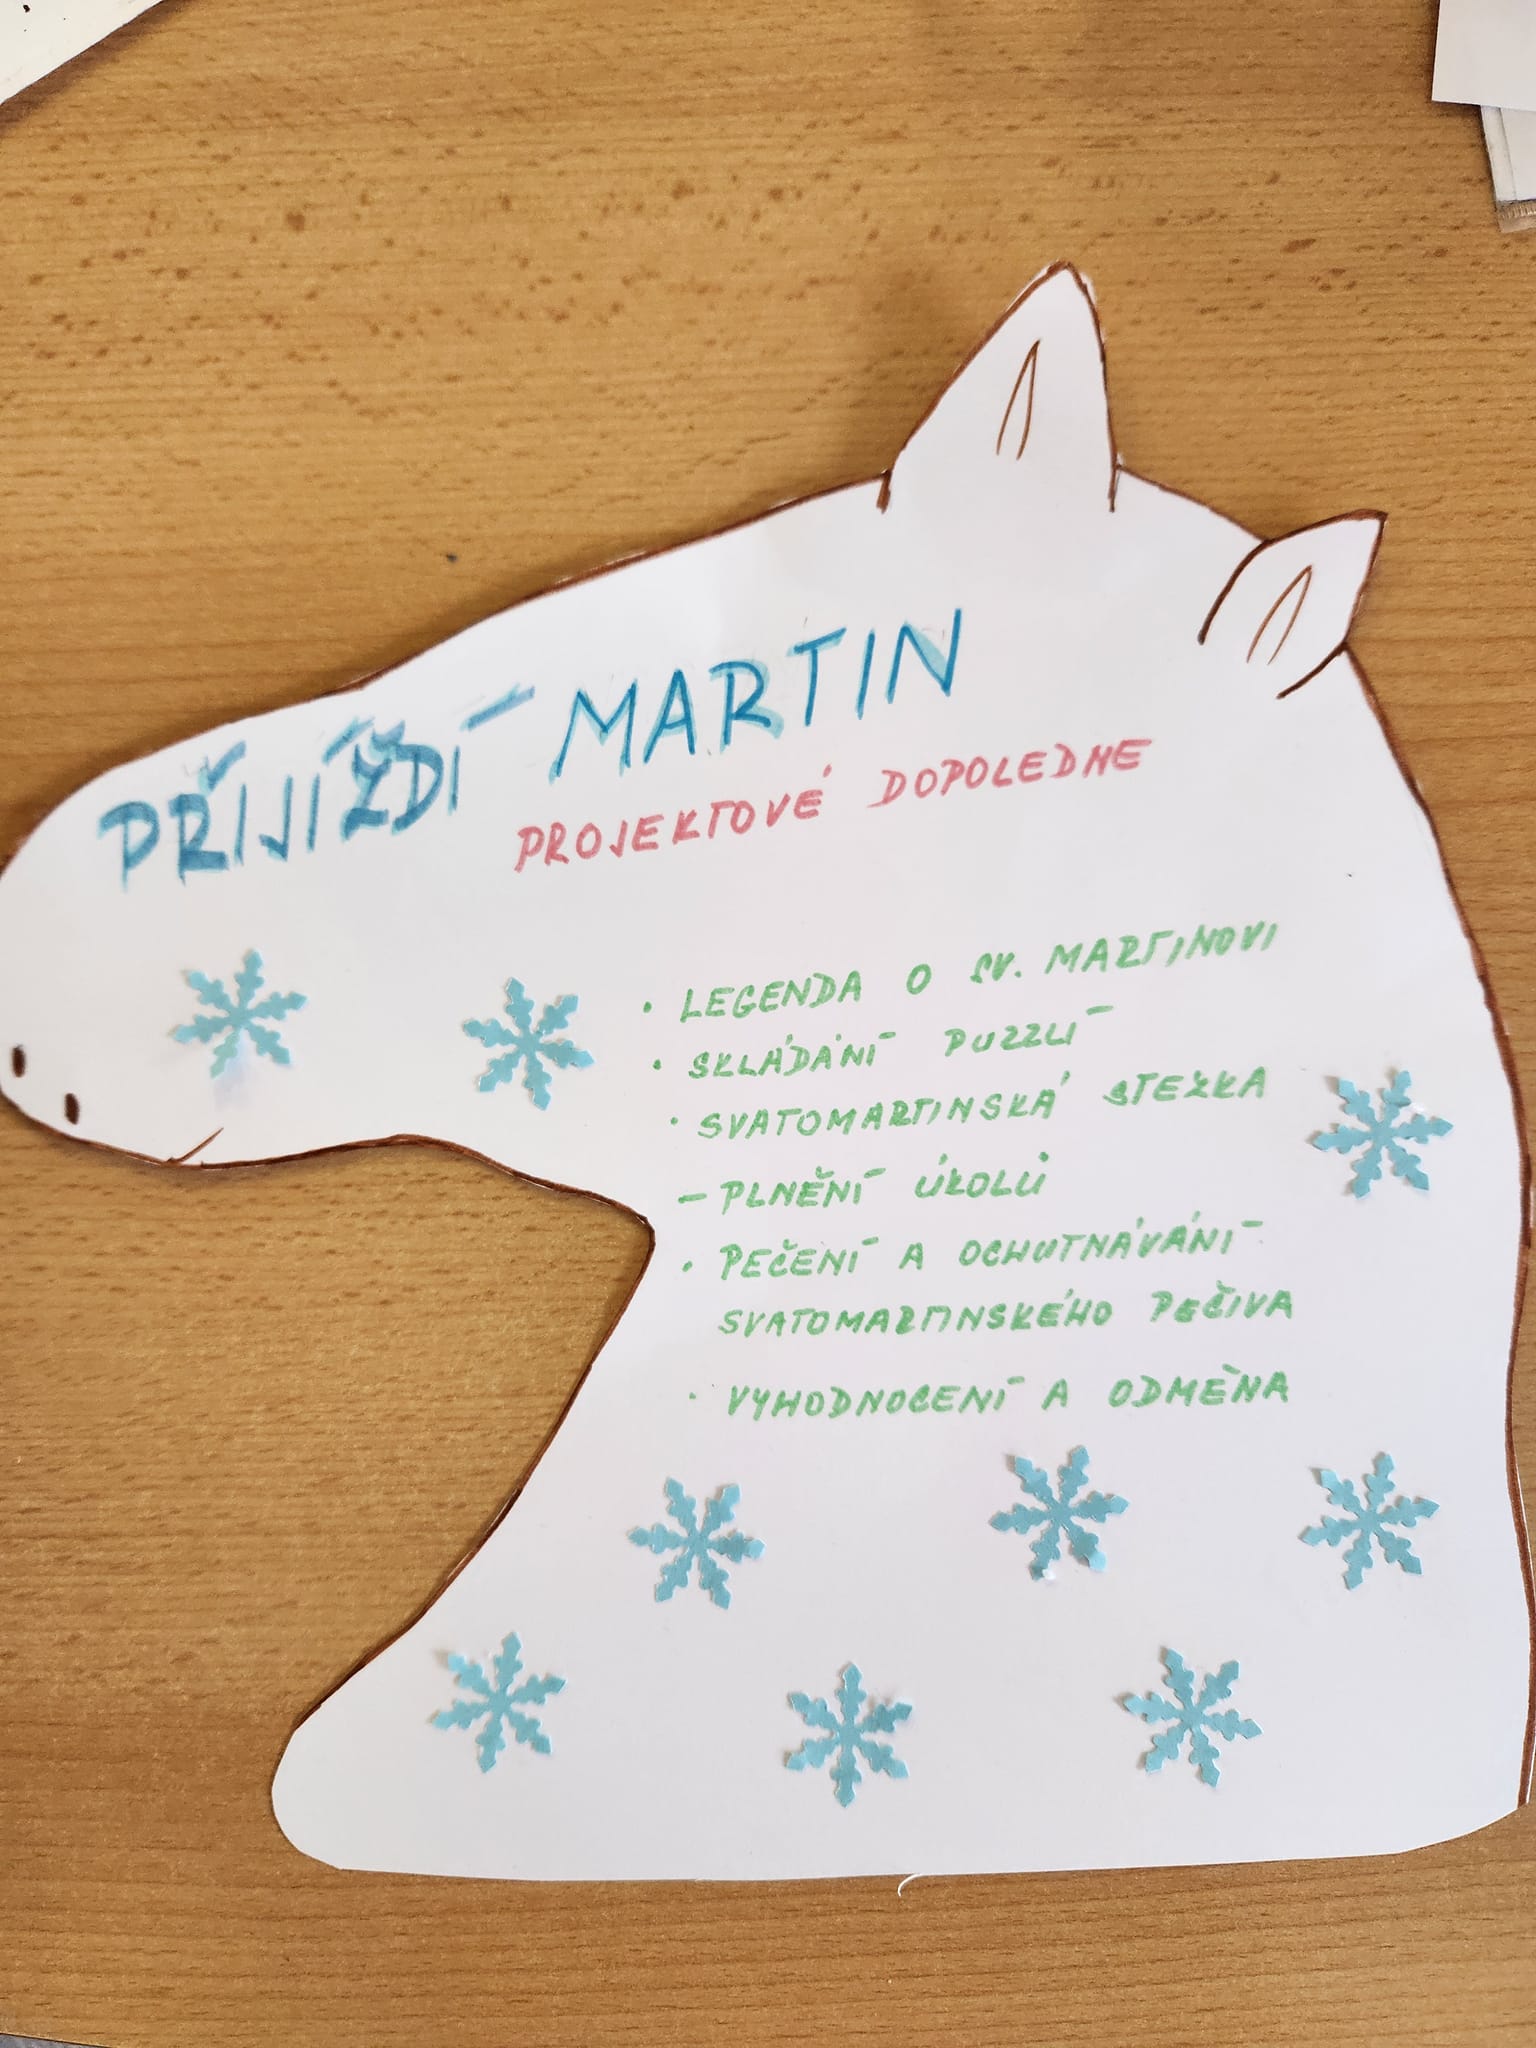 PŘIJÍŽDÍ MARTIN
PROJEKTOVÉ DOPOLEDNE
• LEGENDA O SV. MARTINOVI
• SKLÁDÁNÍ PUZZLÍ
• SVATOMARTINSKÁ STEZKA
– PLNĚNÍ ÚKOLŮ
• PEČENÍ A OCHUTNÁVÁNÍ
SVATOMARTINSKÉHO PEČIVA
• VYHODNOCENÍ A ODMĚNA